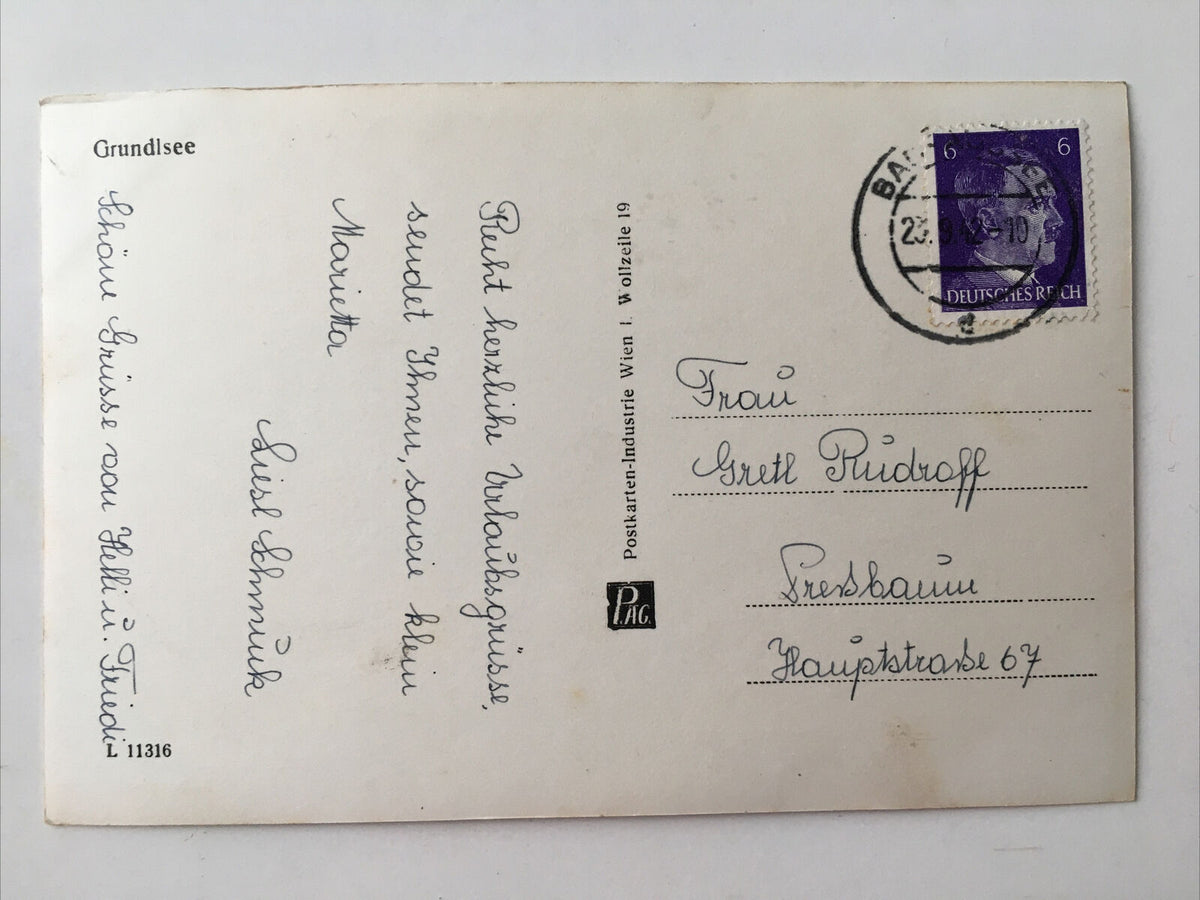 Grundlsee
Recht herzliche Urlaubsgrüsse,
sendet Ihnen, sowie klein
Marietta
Liesl Schmuck
Schöne Grüsse von Helli u. Friedi
L 11316
Postkarten-Industrie Wien I. Wollzeile 19
P.AG.
6 6
23. 9. 42-10
DEUTSCHES REICH
d
Frau
Gretl Rudroff
Preßbaum
Hauptstraße 67